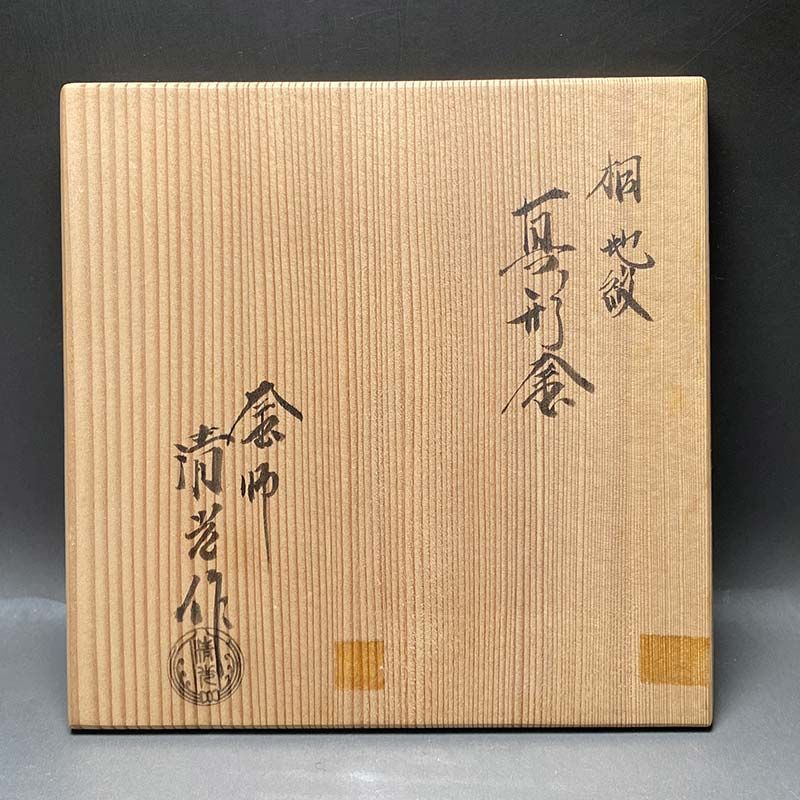 桐地紋
真形釜
釜師
清光作